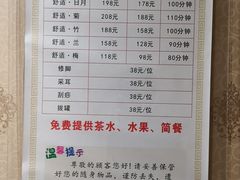 舒适·日月 198元 178元 100分钟
舒适·菊 208元 188元 110分钟
舒适·竹 188元 158元 100分钟
舒适·兰 158元 128元 90分钟
舒适·梅 118元 98元 80分钟
修脚 38元/位
采耳 38元/位
刮痧 38元/位
拔罐 38元/位
免费提供茶水、水果、简餐
温馨提示
尊敬的顾客您好！请妥善保管
好您的随身物品，谨防丢失，谨